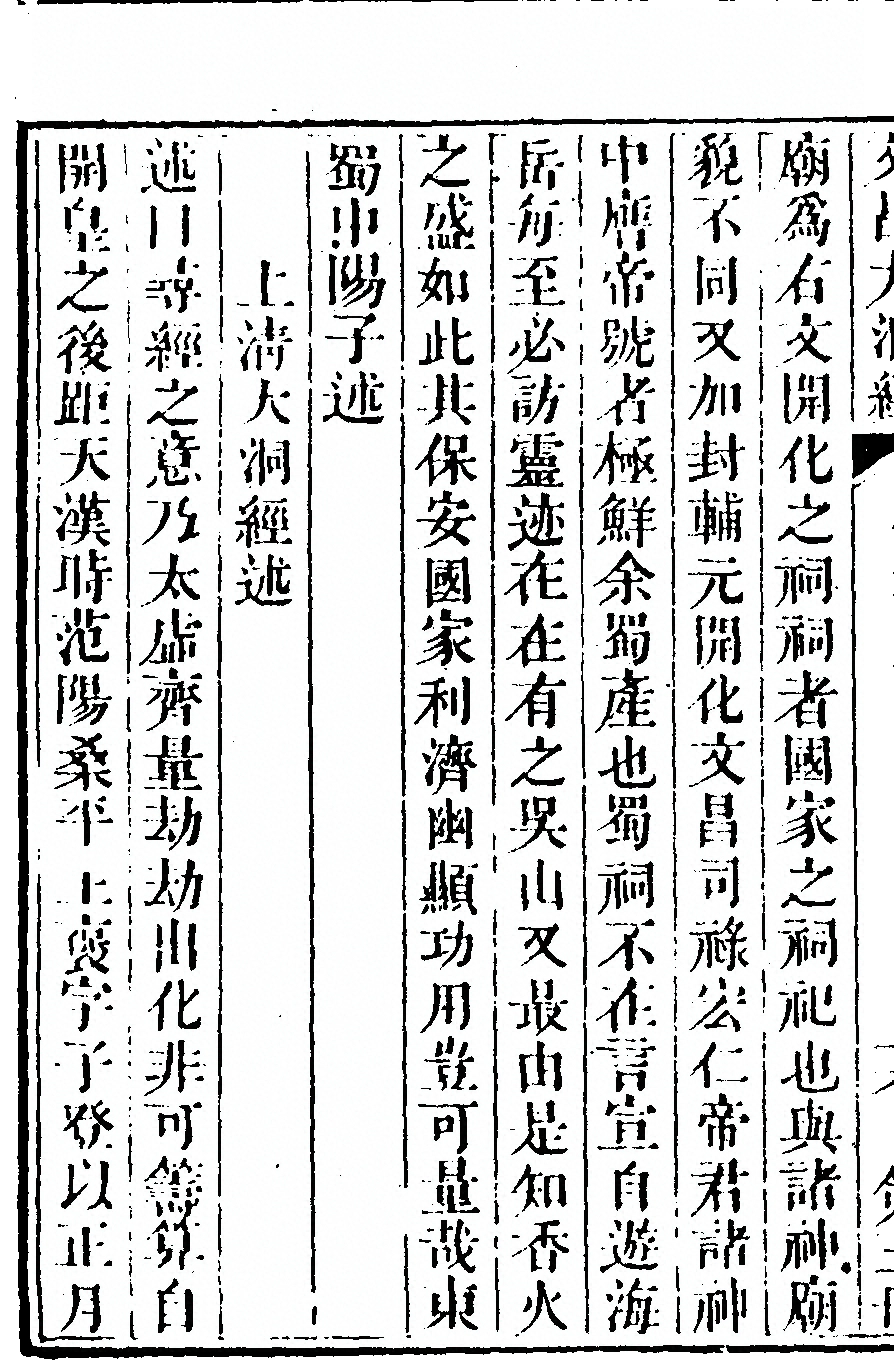 廟爲右文開化之祠祠者國家之祠祀也與諸神廟
貌不同又加封輔元開化文昌司祿宏仁帝君諸神
中膺帝號者極鮮余蜀產也蜀祠不在言宣自遊海
岳每至必訪靈迹在在有之吳山又最由是知香火
之盛如此其保安國家利濟幽顯功用豈可量哉東
蜀中陽子述
上淸大洞經述
述曰尋經之意乃太虛齊量劫劫出化非可籌算自
開皇之後距天漢時范陽桑平上喪字子發以正月